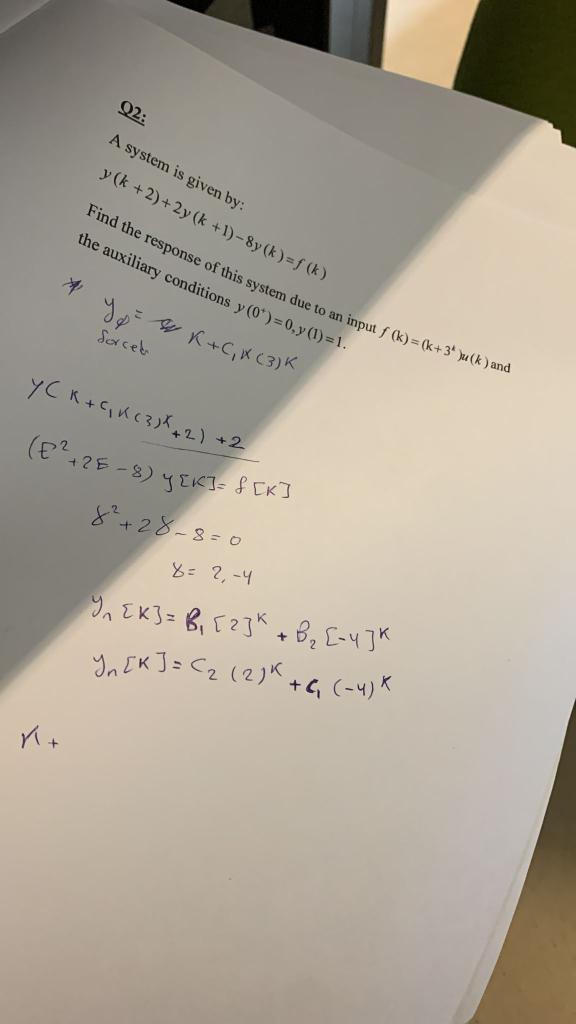 Q2:
A system is given by:
y(k+2)+2y(k+1)−8y(k)=f(k)
Find the response of this system due to an input f(k)=(k+3^k)u(k) and
the auxiliary conditions y(0⁺)=0, y(1)=1.
* yø = K+C₁K(3)K
forced
y(K+C₁K(3)^K+2)+2
(E²+2E−8) y[K]=f[K]
γ²+2γ−8=0
γ=2,−4
yn[K]=B₁[2]^K+B₂[−4]^K
yn[K]=C₂(2)^K+C₁(−4)^K
K+